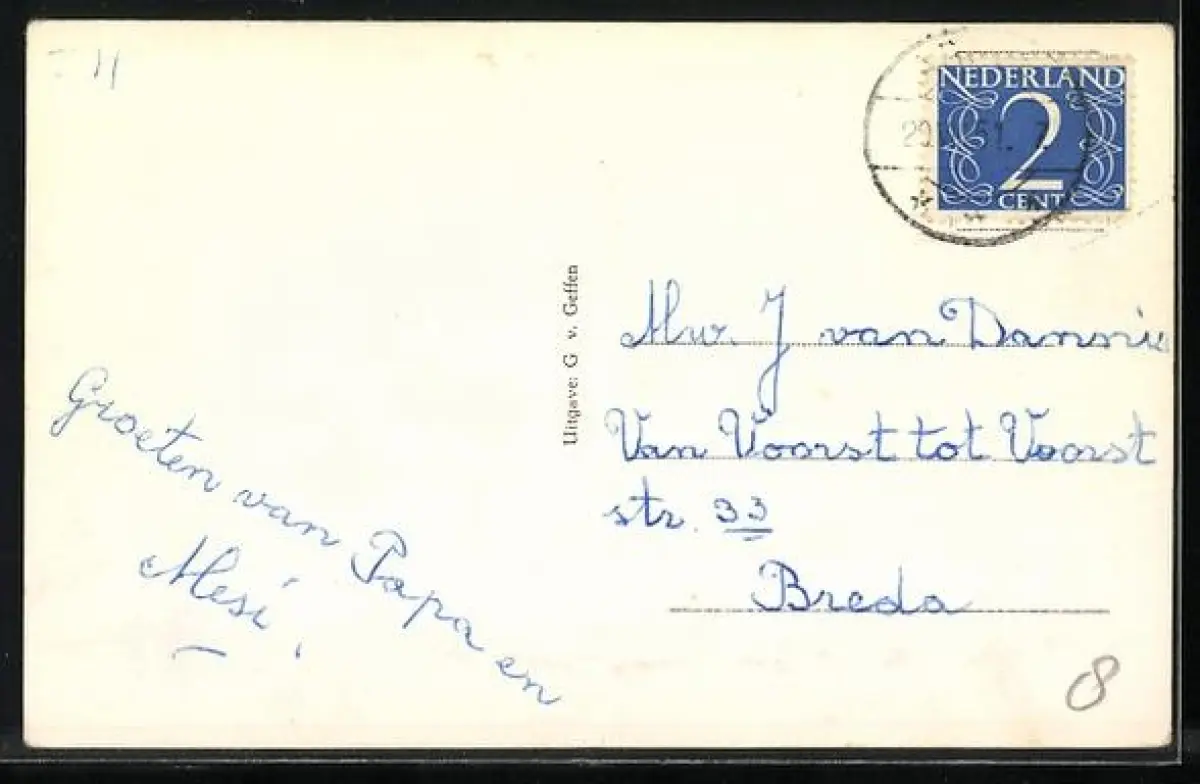 NEDERLAND
2
CENT
Uitgave: G. v. Geffen
Mw. J van Dannie
Van Voorst tot Voorst
str. 33
Breda
Groeten van Papa en
Mesi.
8